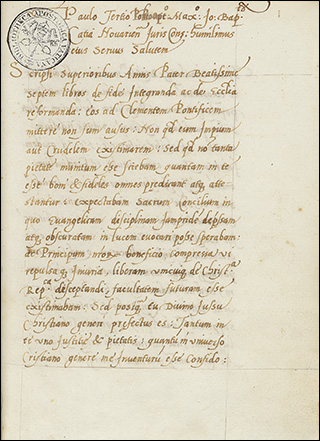 Paulo Tertio Pont. Max: Jo: Bap
tista Novarien Juris Cons: humilimus
eius Servus Salutem
Scripsi Superioribus Annis Pater Beatissime
septem libros de fide Integranda ac de Ecclia
reformanda: eos ad Clementem Pontificem
mittere non sum ausus: Non qd eum Impium
aut Crudelem existimarem: Sed qd no tanta
pietate munitum esse sciebam quantam in te
esse boni & fideles omnes predicant atq. atte
stantur: expectabam Sacrum Concilium in
quo Evangelicam disciplinam iampride depssam
atq. obscuratam in lucem evocari posse sperabam:
de Principum beneficio, compressa vi
repulsa q. Iniuria, liberam unicuiq. de Christa
Rep.ca disceptandi, facultatem futuram esse
existimabam: Sed postq. tu, Divino Jussu
Christiano generi prefectus es: Tantum in
te uno Justitie & pietatis: quantu in universo
Cristiano genere me Inventuru esse Confido: